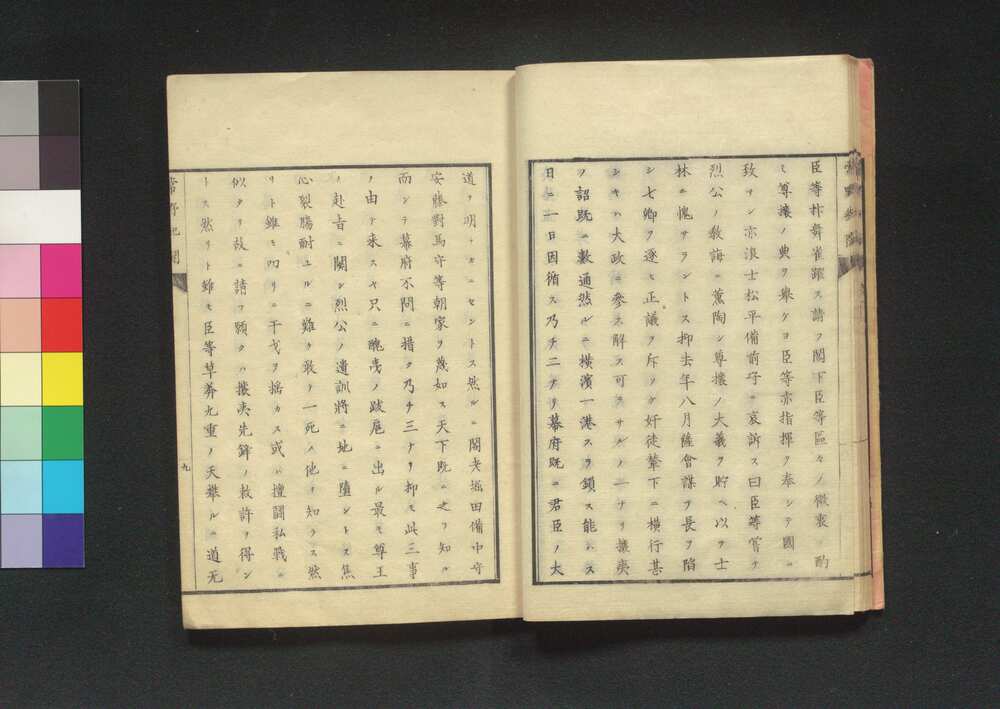 臣等抃舞雀躍ス請フ閣下臣等區々ノ微衷ヲ酌
ミ尊攘ノ典ヲ擧ゲヨ臣等亦指揮ヲ奉シテ國ニ
致サン亦浪士松平備前守ニ哀訴ス曰臣等嘗テ
烈公ノ教誨ニ薫陶シ尊攘ノ大義ヲ貯ヘ以テ士
林ニ愧サラントス抑去年八月薩會謀テ長ヲ陷
シ七卿ヲ逐ヒ正議ヲ斥ソケ奸徒輦下ニ横行甚
シキハ大政ニ參ス解ス可ラサルノ一ナリ攘夷
ノ詔既ニ數通然ルニ横濱一港スラ鎖ス能ハス
日ニ一日因循ス乃チ二ナリ幕府既ニ君臣ノ大
道ヲ明カニセントス然ルニ閣老堀田備中守
安藤對馬守等朝家ヲ蔑如ス天下既ニ之ヲ知ル
而シテ幕府不問ニ措ク乃チ三ナリ抑モ此三事
ノ由テ来スヤ只ニ醜夷ノ跋扈ニ出ル最モ尊王
ノ赴旨ニ闕シ烈公ノ遺訓將ニ地ニ墮ントス焦
心裂腸耐ユルニ難ク敢テ一死ノ他ヲ知ラス然
リト雖モ叨リニ干戈ヲ揺カス或ハ擅闘私戰ニ
似タリ故ニ請フ願クハ攘夷先鋒ノ救許ヲ得ン
トス然リト雖モ臣等草莽九重ノ天攀ルニ道无
常野紀聞
九